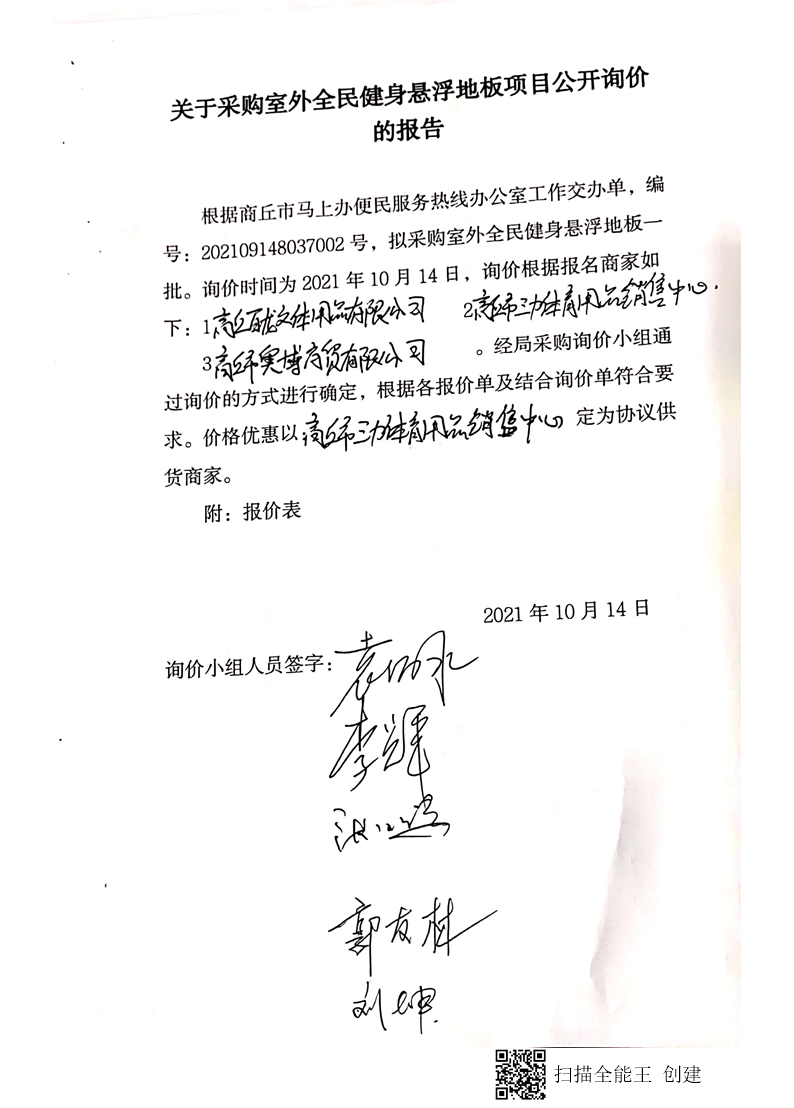 关于采购室外全民健身悬浮地板项目公开询价
的报告
根据商丘市马上办便民服务热线办公室工作交办单，编
号：202109148037002号，拟采购室外全民健身悬浮地板一
批。询价时间为2021年10月14日，询价根据报名商家如
下：1商丘百龙文体用品有限公司 2商丘市三力体育用品销售中心.
3商丘市奥博商贸有限公司 。经局采购询价小组通
过询价的方式进行确定，根据各报价单及结合询价单符合要
求。价格优惠以商丘市三力体育用品销售中心定为协议供
货商家。
附：报价表
2021年10月14日
询价小组人员签字：
李辉
郭友林
刘坤
扫描全能王 创建